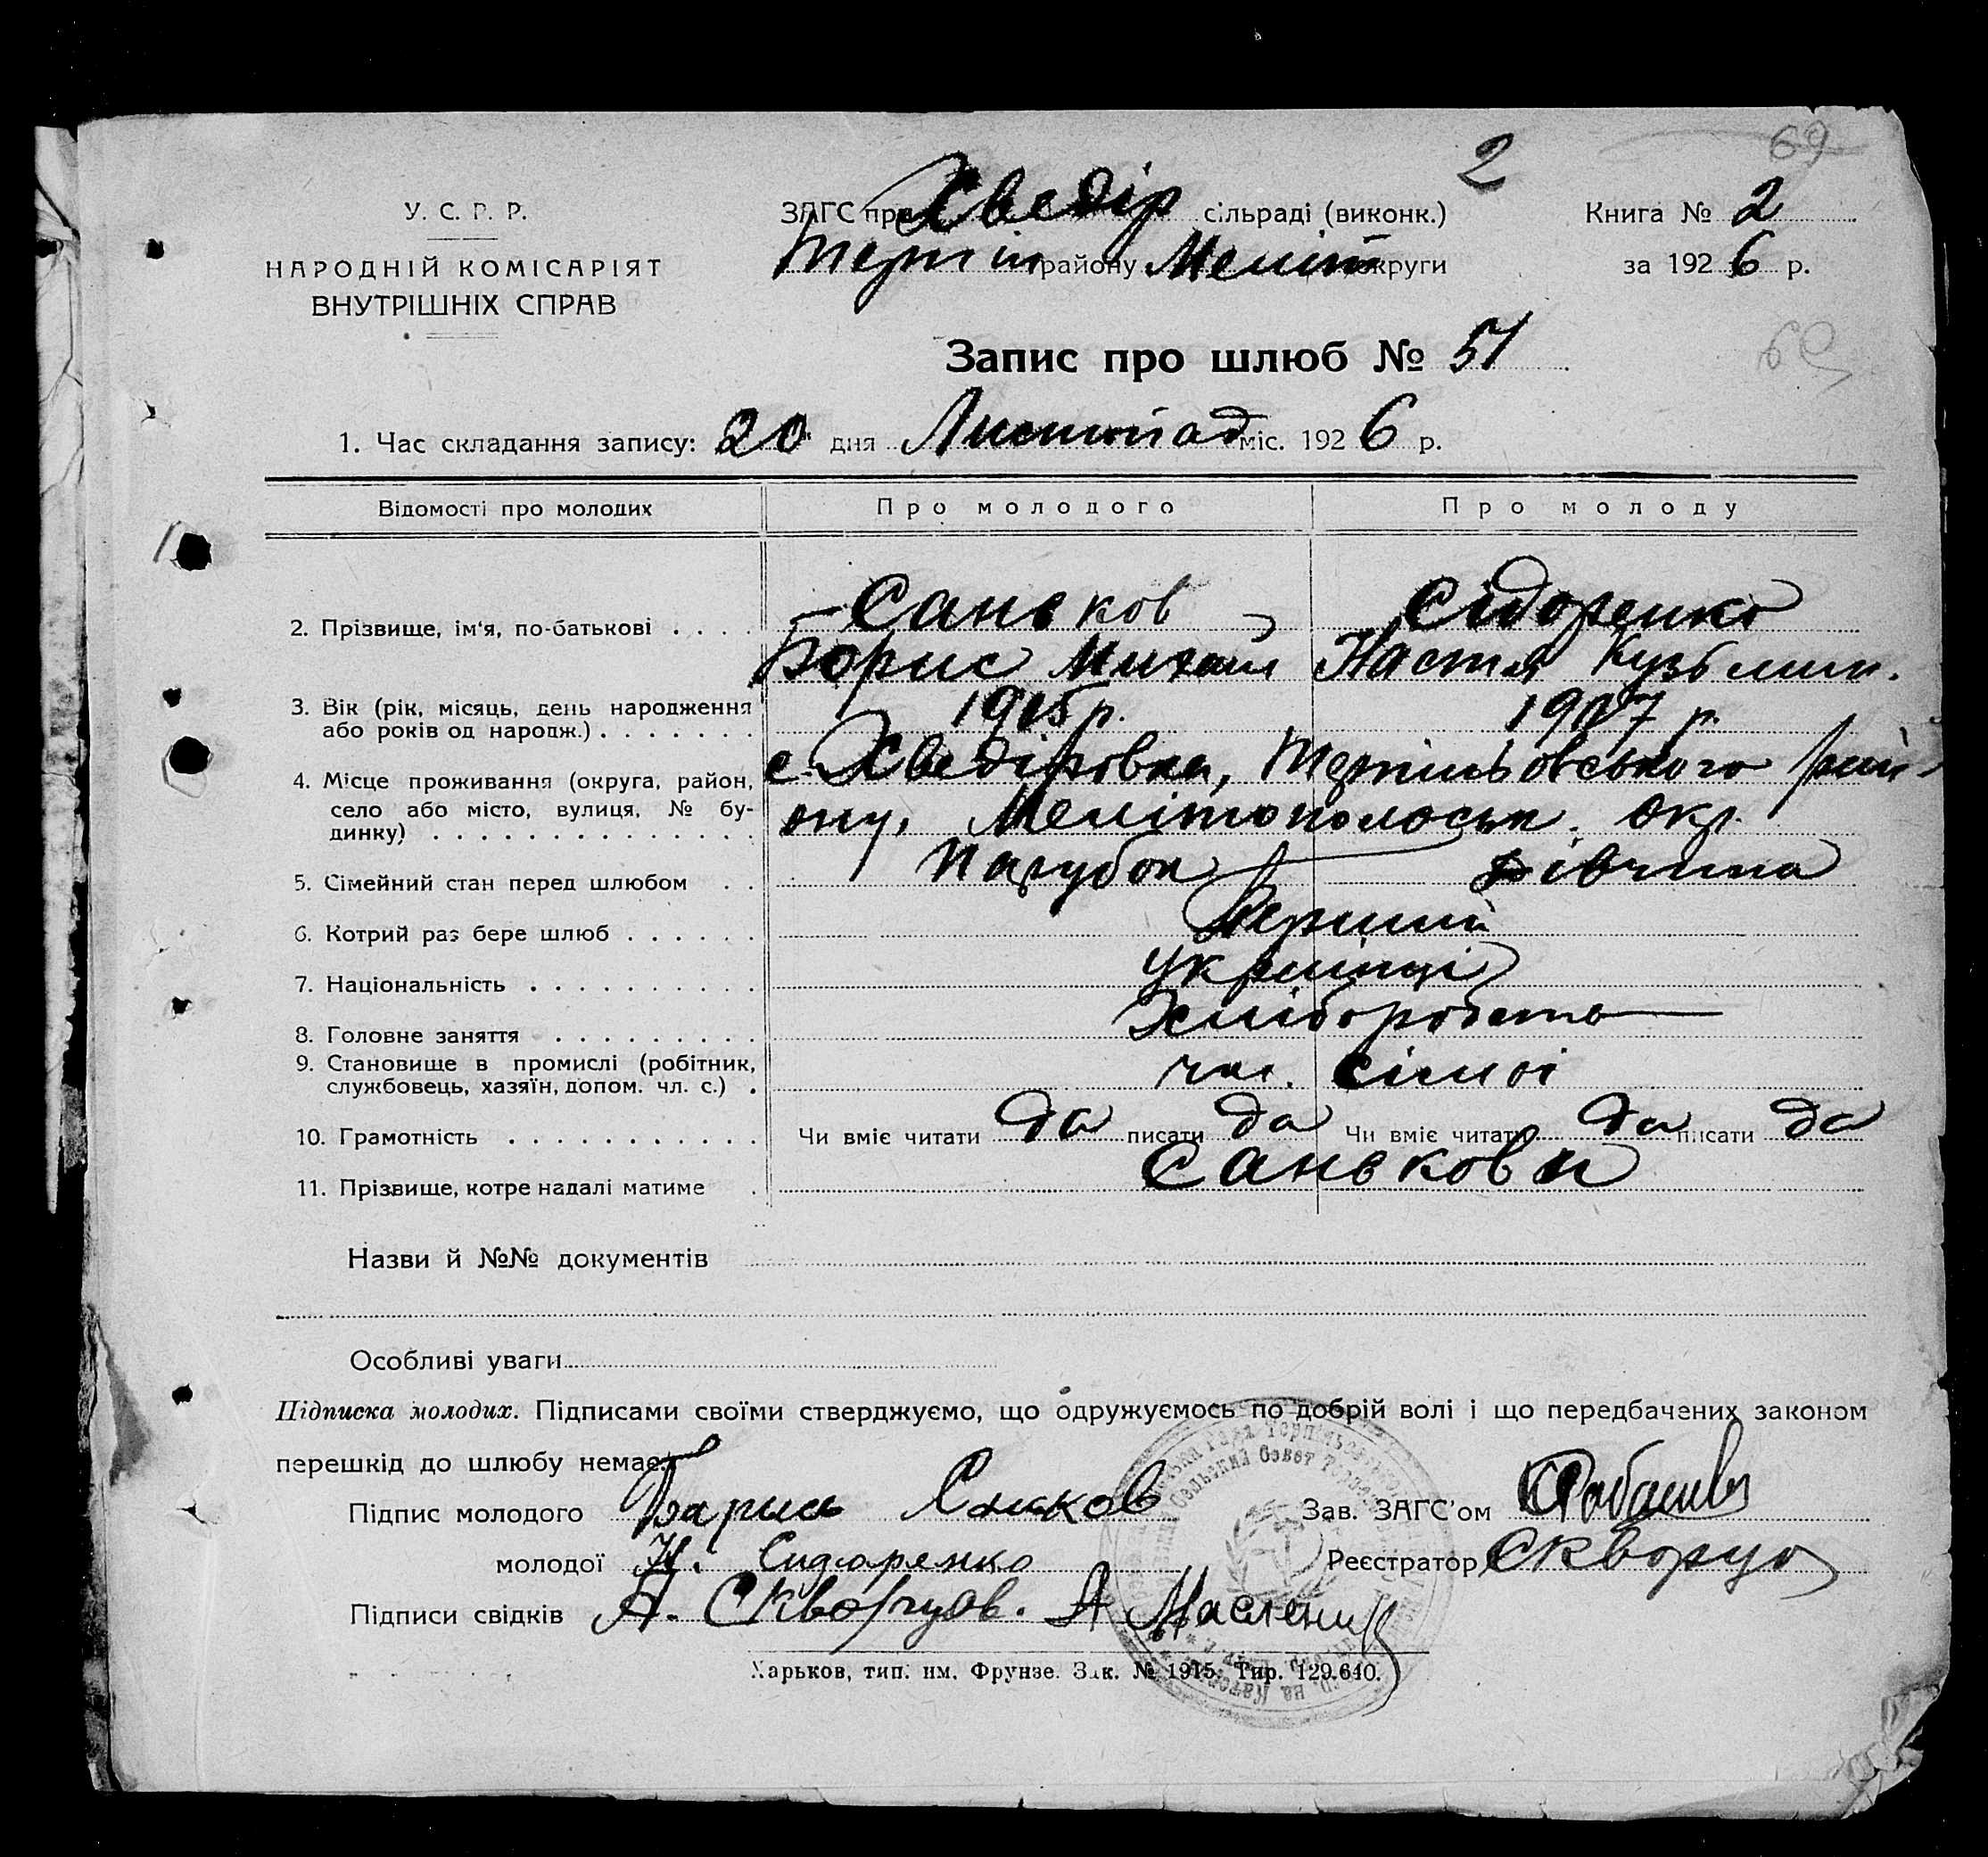 2
69
У. С. Р. Р.
НАРОДНІЙ КОМІСАРІЯТ
ВНУТРІШНІХ СПРАВ
ЗАГС при Хведір сільраді (виконк.)
Терпін району Меліт округи
Книга № 2
за 1926 р.
Запис про шлюб № 51
69
1. Час складання запису: 20 дня Листопад міс. 1926 р.
Відомості про молодих Про молодого Про молоду
2. Прізвище, ім'я, по-батькові . . . . Саньков Сідоренко
Борис Михайл Настя Кузьмин.
3. Вік (рік, місяць, день народження
або років од народж.) . . . . . . . 1905 р. 1907 р.
4. Місце проживання (округа, район,
село або місто, вулиця, № бу-
динку) . . . . . . . . . . . . . .
с. Хведіровка, Терпіньовського рай-
ону, Мелітопольськ. окр.
5. Сімейний стан перед шлюбом . . Парубок Дівчина
6. Котрий раз бере шлюб . . . . . . Перший
7. Національність . . . . . . . . . . українці
8. Головне заняття . . . . . . . . . Хліборобств
9. Становище в промислі (робітник,
службовець, хазяїн, допом. чл. с.) . чл. сімї
10. Грамотність . . . . . . . . . . . Чи вміє читати да писати да Чи вміє читати да писати да
11. Прізвище, котре надалі матиме . Саньковы
Назви й №№ документів
Особливі уваги
Підписка молодих. Підписами своїми стверджуємо, що одружуємось по добрій волі і що передбачених законом
перешкід до шлюбу немає.
Підпис молодого Барис Санков Зав. ЗАГС'ом
молодої Н. Сидоренко Реєстратор Скворцо
Підписи свідків А. Скворцов. А Масленик
Харьков, тип. им. Фрунзе. Зак. № 1915. Тир. 129.640.